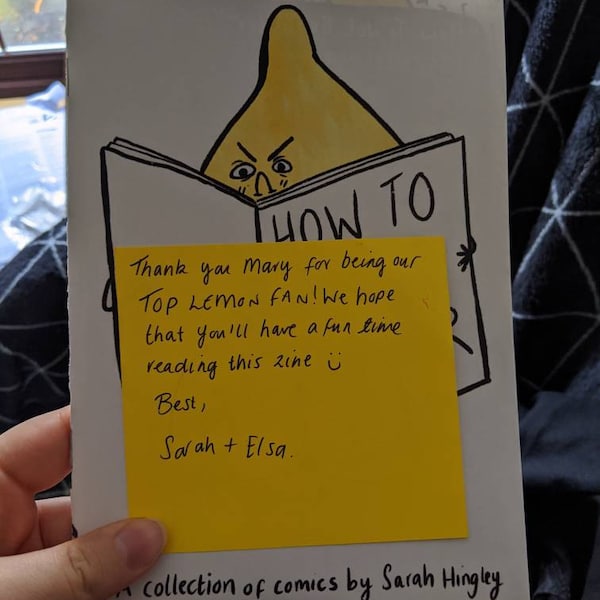 HOW TO
Thank you Mary for being our
TOP LEMON FAN! We hope
that you'll have a fun time
reading this zine
Best,
Sarah + Elsa.
A collection of comics by Sarah Hingley